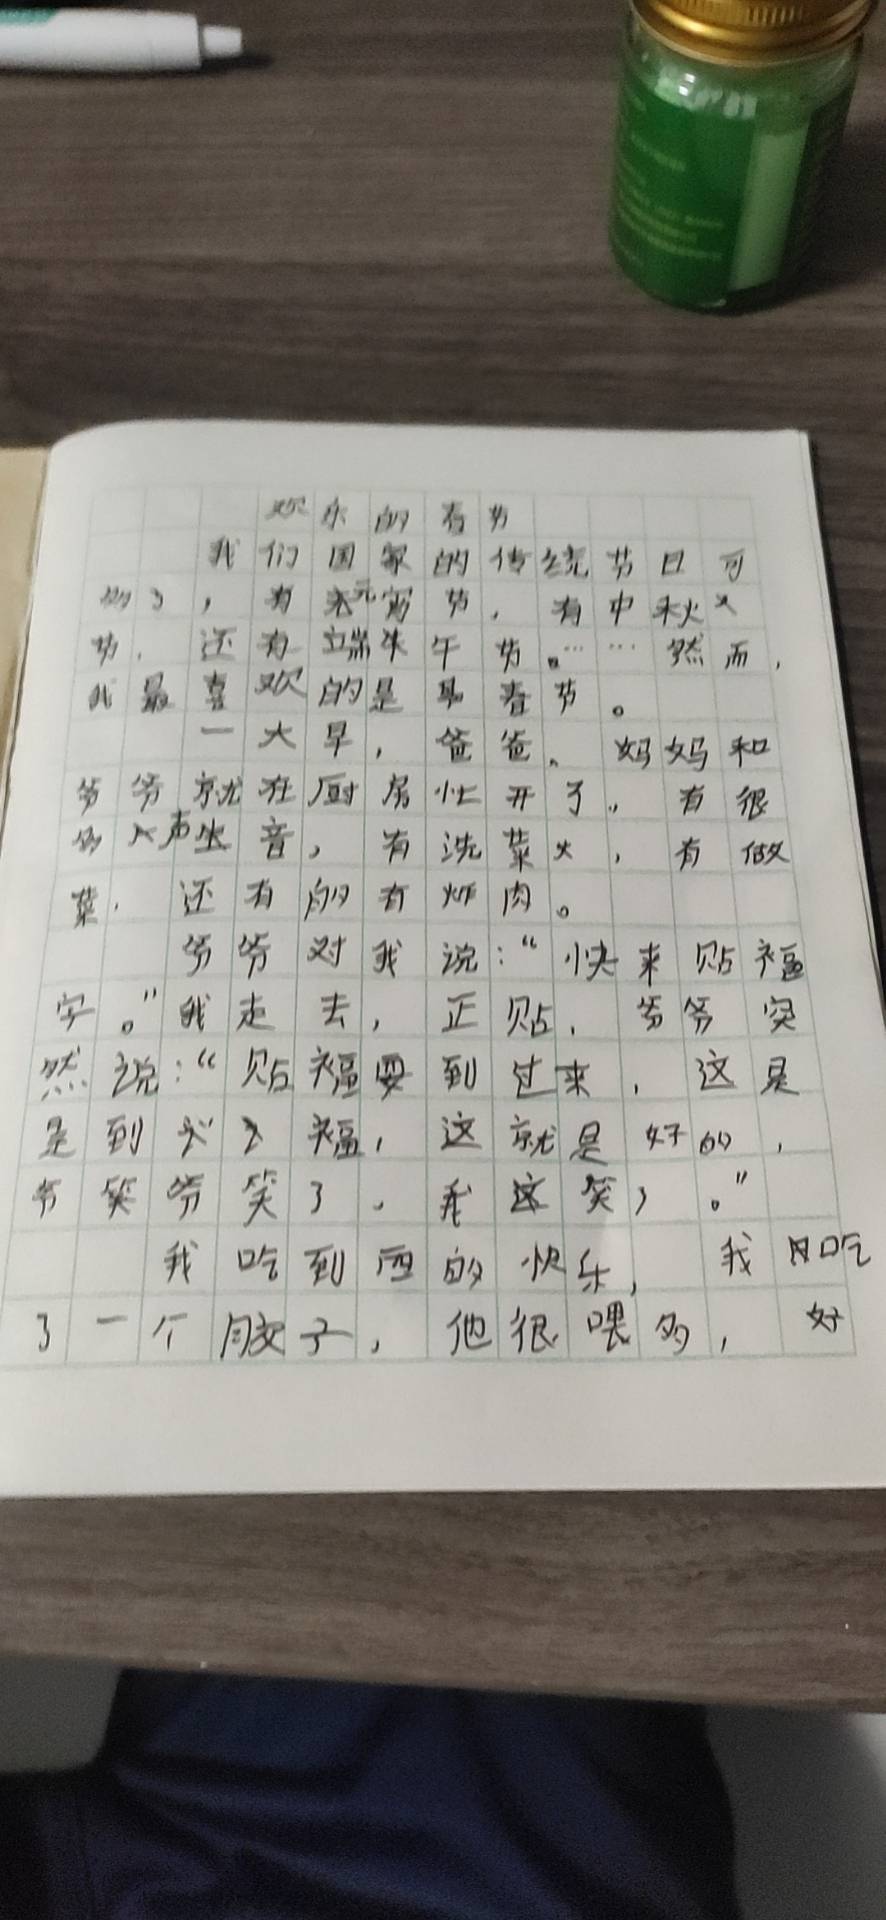 欢乐的春节
我们国家的传统节日可
多了，有元宵节，有中秋
节，还有端午节。……然而，
我最喜欢的是春节。
一大早，爸爸、妈妈和
爷爷就在厨房忙开了，有很
多声音，有洗菜，有做
菜，还有的有炸肉。
爷爷对我说：“快来贴福
字。”我走去，正贴，爷爷突
然说：“贴福要到过来，这是
是到福，这就是好的，
爷笑爷笑了，我这笑了。”
我吃到的快乐，我吃
了一个胶子，他很喂多，好